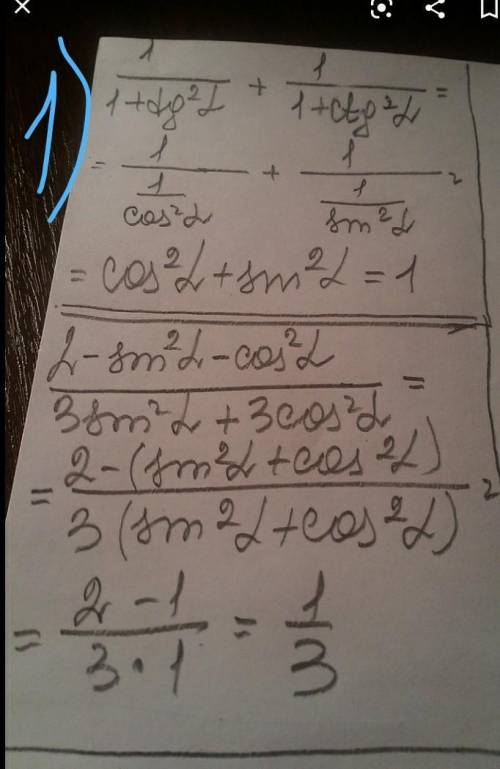 1)
1/(1+tg²α) + 1/(1+ctg²α) =
= 1/(1/cos²α) + 1/(1/sin²α) =
= cos²α + sin²α = 1
(2 - sin²α - cos²α)/(3sin²α + 3cos²α) =
= (2 - (sin²α + cos²α))/(3(sin²α + cos²α)) =
= (2 - 1)/(3 · 1) = 1/3